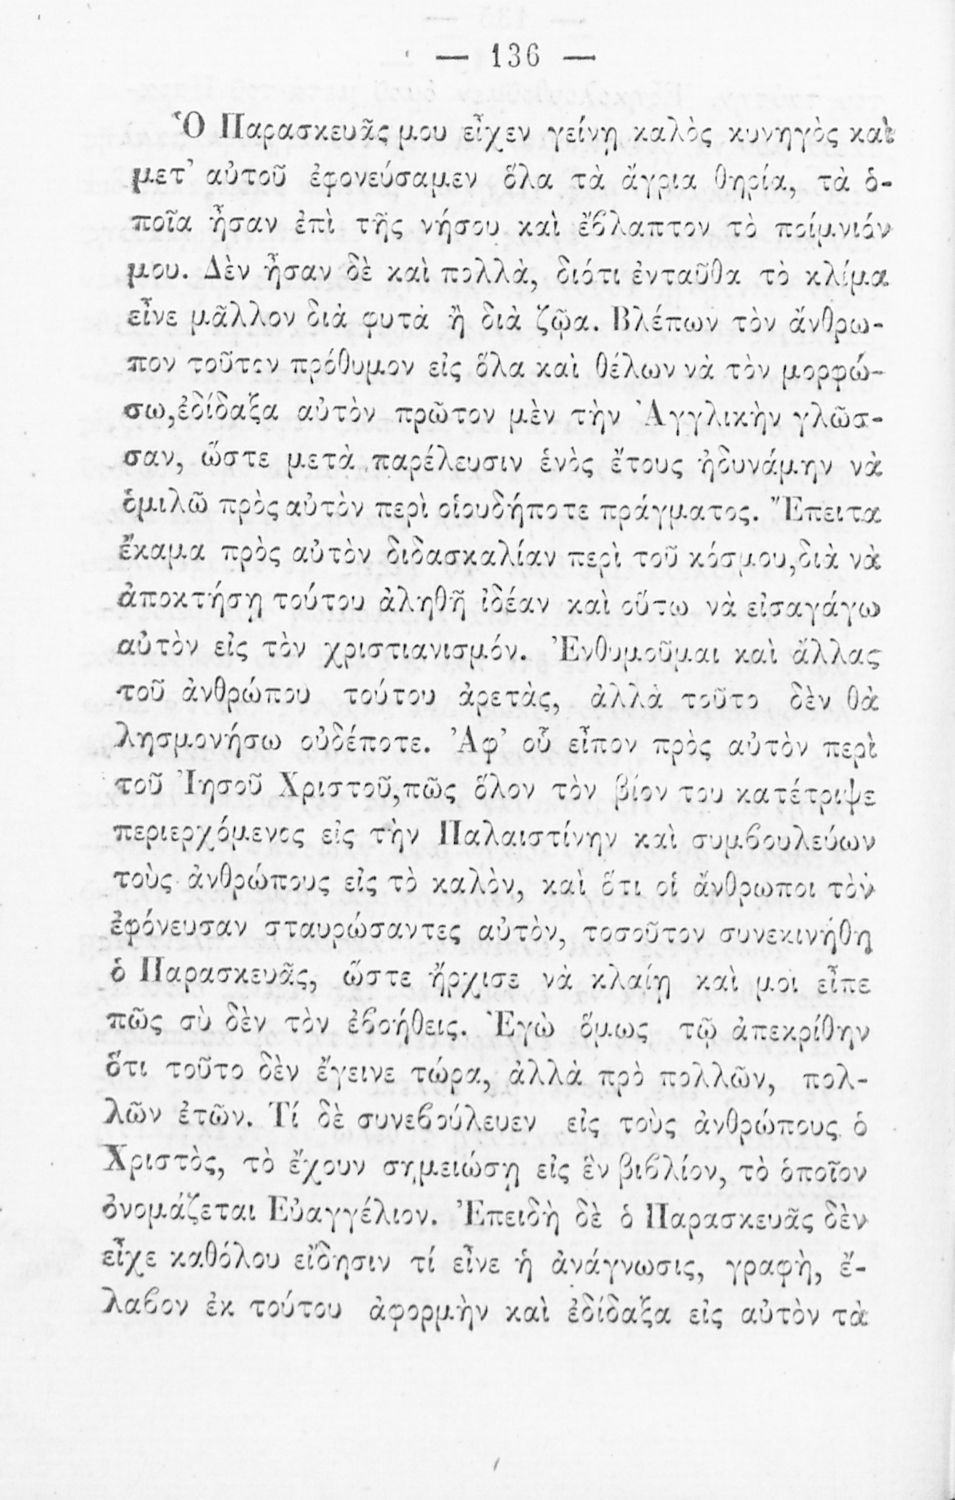 — 136 —
Ὁ Παρασκευᾶς μου εἶχεν γείνῃ καλὸς κυνηγὸς καὶ
μετ’ αὐτοῦ ἐφονεύσαμεν ὅλα τὰ ἄγρια θηρία, τὰ ὁ-
ποῖα ἦσαν ἐπὶ τῆς νήσου καὶ ἔβλαπτον τὸ ποίμνιόν
μου. Δὲν ἦσαν δὲ καὶ πολλὰ, διότι ἐνταῦθα τὸ κλίμα
εἶνε μᾶλλον διὰ φυτὰ ἢ διὰ ζῷα. Βλέπων τὸν ἄνθρω-
πον τοῦτον πρόθυμον εἰς ὅλα καὶ θέλων νὰ τὸν μορφώ-
σω,ἐδίδαξα αὐτὸν πρῶτον μὲν τὴν Ἀγγλικὴν γλῶσ-
σαν, ὥστε μετὰ παρέλευσιν ἑνὸς ἔτους ἠδυνάμην νὰ
ὁμιλῶ πρὸς αὐτὸν περὶ οἱουδήποτε πράγματος. Ἔπειτα
ἔκαμα πρὸς αὐτὸν διδασκαλίαν περὶ τοῦ κόσμου,διὰ νὰ
ἀποκτήσῃ τούτου ἀληθῆ ἰδέαν καὶ οὕτω νὰ εἰσαγάγω
αὐτὸν εἰς τὸν χριστιανισμόν. Ἐνθυμοῦμαι καὶ ἄλλας
τοῦ ἀνθρώπου τούτου ἀρετὰς, ἀλλὰ τοῦτο δὲν θὰ
λησμονήσω οὐδέποτε. Ἀφ’ οὗ εἶπον πρὸς αὐτὸν περὶ
τοῦ Ἰησοῦ Χριστοῦ,πῶς ὅλον τὸν βίον του κατέτριψε
περιερχόμενος εἰς τὴν Παλαιστίνην καὶ συμβουλεύων
τοὺς ἀνθρώπους εἰς τὸ καλὸν, καὶ ὅτι οἱ ἄνθρωποι τὸν
ἐφόνευσαν σταυρώσαντες αὐτὸν, τοσοῦτον συνεκινήθη
ὁ Παρασκευᾶς, ὥστε ἤρχισε νὰ κλαίῃ καὶ μοὶ εἶπε
πῶς σὺ δὲν τὸν ἐβοήθεις. Ἐγὼ ὅμως τῷ ἀπεκρίθην
ὅτι τοῦτο δὲν ἔγεινε τώρα, ἀλλὰ πρὸ πολλῶν, πολ-
λῶν ἐτῶν. Τί δὲ συνεβούλευεν εἰς τοὺς ἀνθρώπους ὁ
Χριστὸς, τὸ ἔχουν σημειώσῃ εἰς ἓν βιβλίον, τὸ ὁποῖον
ὀνομάζεται Εὐαγγέλιον. Ἐπειδὴ δὲ ὁ Παρασκευᾶς δὲν
εἶχε καθόλου εἴδησιν τί εἶνε ἡ ἀνάγνωσις, γραφὴ, ἔ-
λαβον ἐκ τούτου ἀφορμὴν καὶ ἐδίδαξα εἰς αὐτὸν τὰ